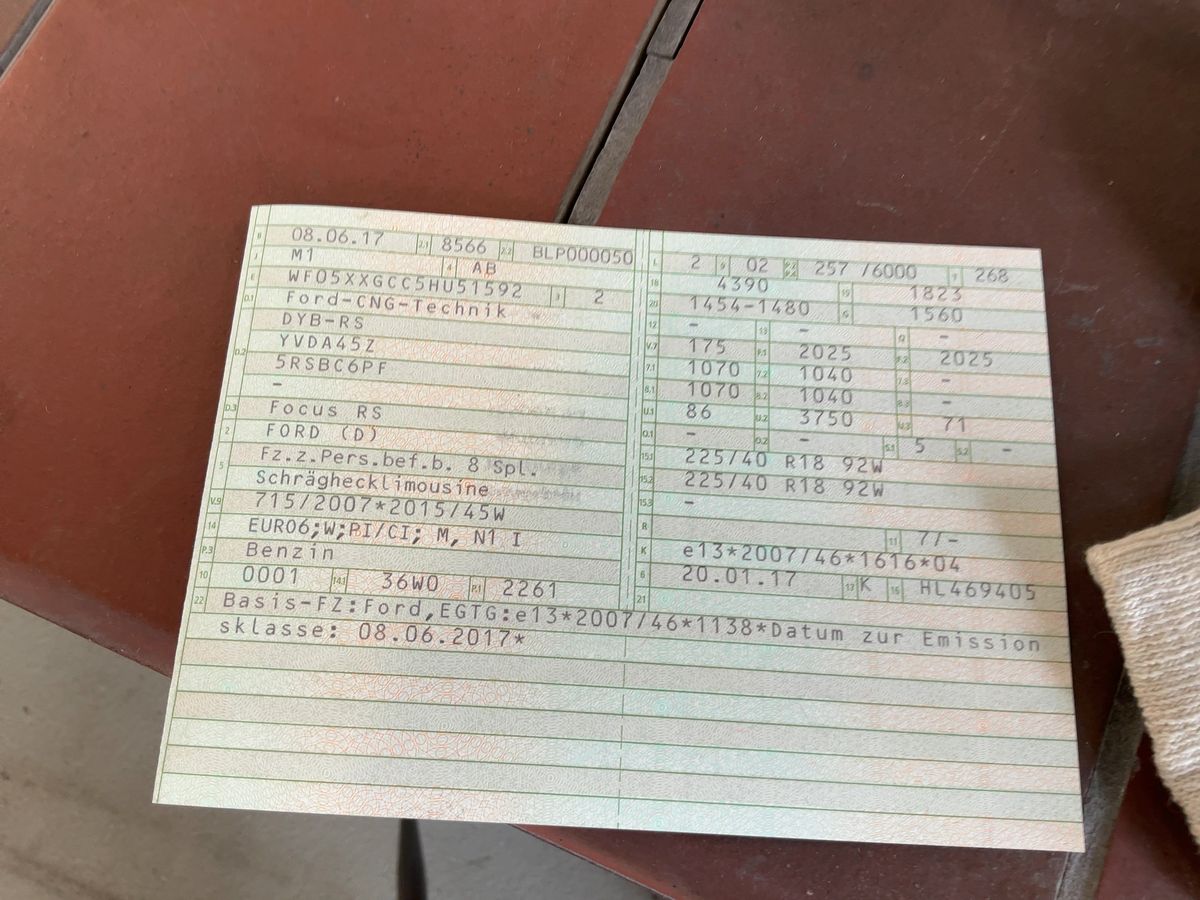 B 08.06.17 2.1 8566 2.2 BLP000050
J M1 4 AB
E WF05XXGCC5HU51592 3 2
D.1 Ford-CNG-Technik
DYB-RS
D.2 YVDA45Z
5RSBC6PF
-
D.3 Focus RS
2 FORD (D)
5 Fz.z.Pers.bef.b. 8 Spl.
Schräghecklimousine
V.9 715/2007*2015/45W
14 EURO6;W;PI/CI; M, N1 I
P.3 Benzin
10 0001 14.1 36W0 P.1 2261
L 2 9 02 P.2 P.4 257 /6000 T 268
18 4390 19 1823
20 1454-1480 G 1560
12 - 13 - Q -
V.7 175 F.1 2025 F.2 2025
7.1 1070 7.2 1040 7.3 -
8.1 1070 8.2 1040 8.3 -
U.1 86 U.2 3750 U.3 71
O.1 - O.2 - S.1 5 S.2 -
15.1 225/40 R18 92W
15.2 225/40 R18 92W
15.3 -
R 11 7/-
K e13*2007/46*1616*04
6 20.01.17 17 K 16 HL469405
21
22 Basis-FZ:Ford,EGTG:e13*2007/46*1138*Datum zur Emission
sklasse: 08.06.2017*